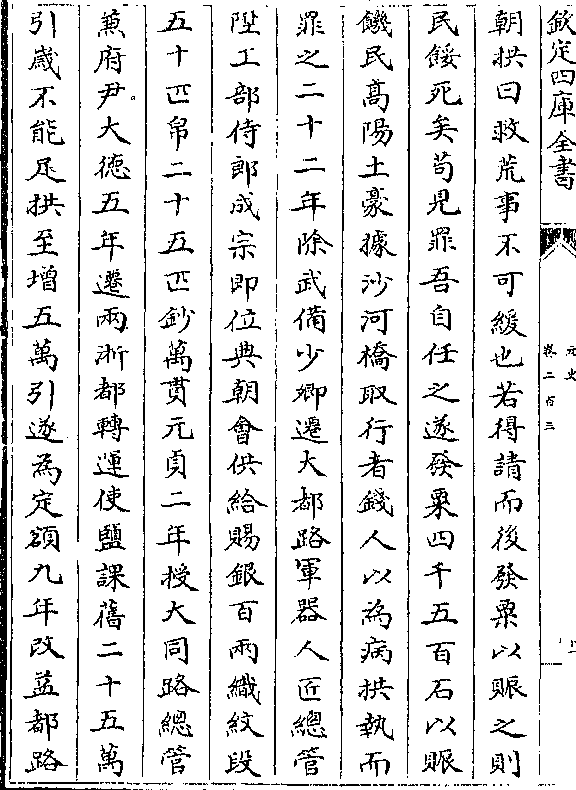 欽定四庫全書
元史
卷二百三
朝拱曰救荒事不可緩也若得請而後發粟以賑之則
民餒死矣苟見罪吾自任之遂發粟四千五百石以賑
饑民髙陽土豪據沙河橋取行者錢人以為病拱執而
罪之二十二年除武備少卿遷大都路軍器人匠總管
陞工部侍郎成宗即位典朝會供給賜銀百兩織紋段
五十匹帛二十五匹鈔萬貫元貞二年授大同路總管
兼府尹大德五年遷兩浙都轉運使鹽課舊二十五萬
引歲不能足拱至增五萬引遂為定額九年改益都路